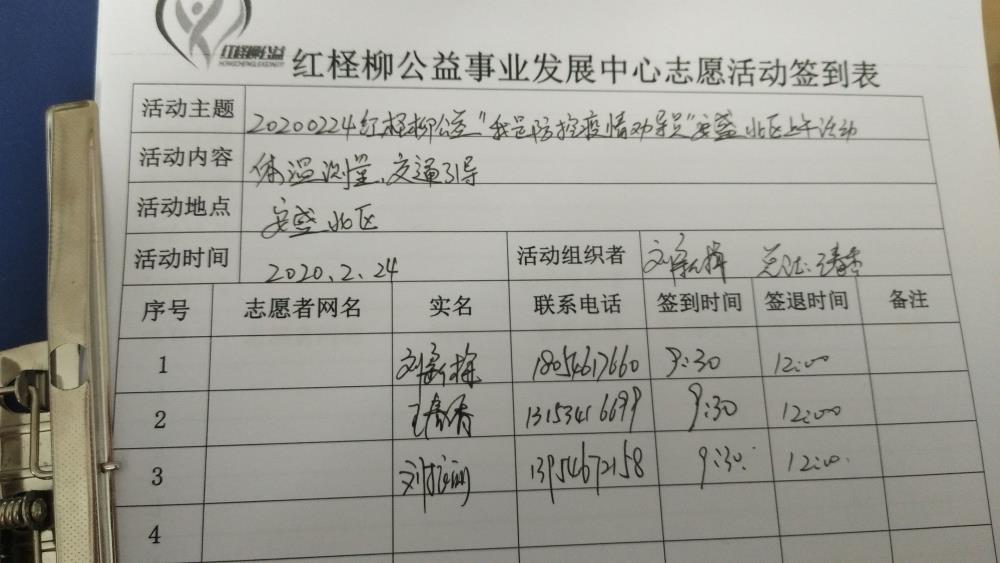 红柽柳公益
HONGCHENGLIUGONGYI
红柽柳公益事业发展中心志愿活动签到表
活动主题 20200224红柽柳公益“我是防控疫情劝导员”安盛北区上午活动
活动内容 体温测量、交通引导
活动地点 安盛北区
活动时间 2020.2.24 活动组织者 刘
序号 志愿者网名 实名 联系电话 签到时间 签退时间 备注
1 刘 18054617660 9:30 12:00
2 王 13153416699 9:30 12:00
3 刘 13954672158 9:30 12:00
4